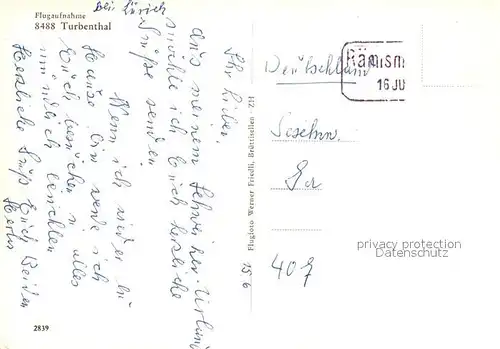 Flugaufnahme
8488 Turbenthal
bei Zürich
Ihr Lieben,
Aus meinem Schweizer-Urlaub
möchte ich Euch herzliche
Grüße senden.
Wenn ich wieder zu
Hause bin werde ich
Euch besuchen u. alles
mündlich berichten
Herzliche Grüße Euch Beiden
15.6
Flugfoto Werner Friedli, Brüttisellen - ZH
Deutschland
Rämism
16 JU
407
privacy protection
Datenschutz
2839